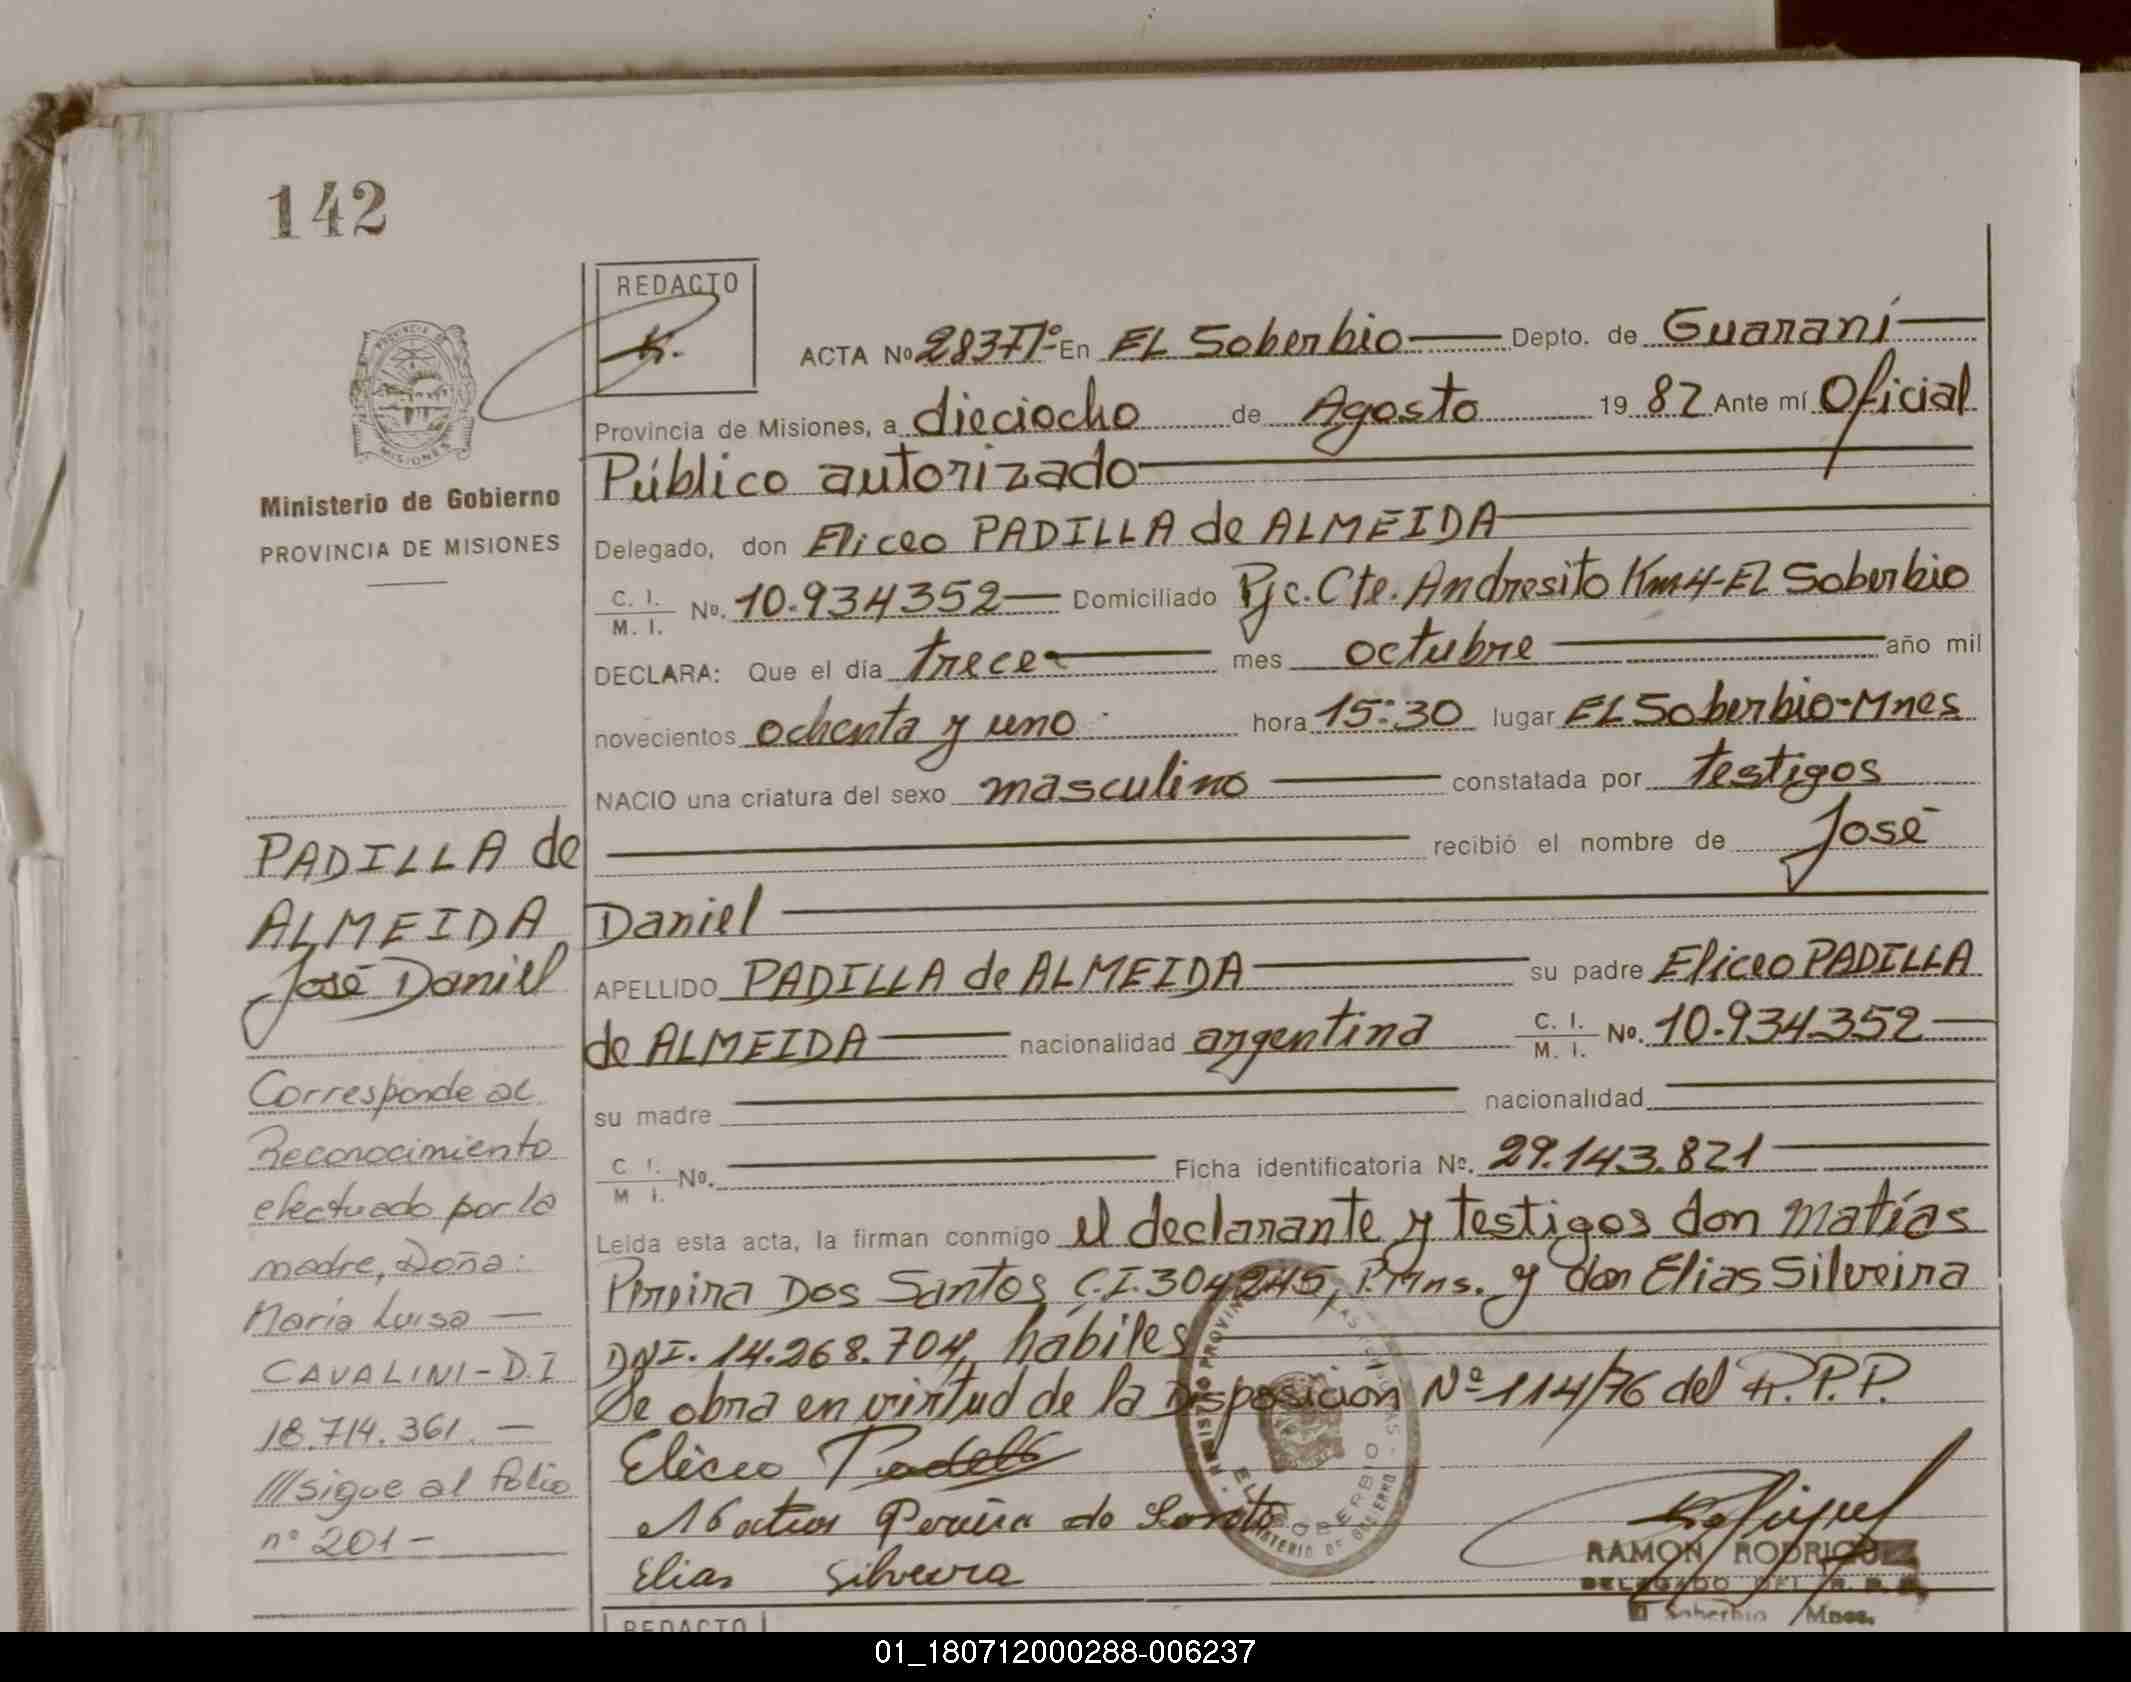 142
REDACTO
ACTA Nº 2837Tº En EL Soberbio Depto. de Guaraní
Provincia de Misiones, a dieciocho de Agosto 1982 Ante mí Oficial
Público autorizado
Delegado, don Eliceo PADILLA de ALMEIDA
C. I. / M. I. Nº. 10.934352 Domiciliado Pjc. Cte. Andresito Km4-EL Soberbio
DECLARA: Que el día trece mes octubre año mil
novecientos ochenta y uno hora 15:30 lugar EL Soberbio-Mnes
NACIO una criatura del sexo masculino constatada por testigos
recibió el nombre de José
Daniel
APELLIDO PADILLA de ALMEIDA su padre Eliceo PADILLA
de ALMEIDA nacionalidad argentina C. I. / M. I. Nº. 10.934352
su madre nacionalidad
C. I. / M. I. Nº. Ficha identificatoria Nº. 29.143.821
Leída esta acta, la firman conmigo el declarante y testigos don Matías
Pereira Dos Santos C.I. 304245, P. Mns. y don Elias Silveira
DNI. 14.268.704, hábiles
Se obra en virtud de la Disposición Nº 114/76 del R.P.P.
Eliceo Padilla
Matias Pereira do Santo
Elias Silveira
RAMON RODRIGUEZ
DELEGADO DEL R. P. P.
El Soberbio Mnes.
PROVINCIA DE
MISIONES
Ministerio de Gobierno
PROVINCIA DE MISIONES
PADILLA de
ALMEIDA
José Daniel
Corresponde al
Reconocimiento
efectuado por la
madre, Doña:
María Luisa —
CAVALINI - D.I
18.714.361. —
///sigue al folio
nº 201 -
EL SOBERBIO
MINISTERIO DE GOBIERNO
REDACTO
01_180712000288-006237